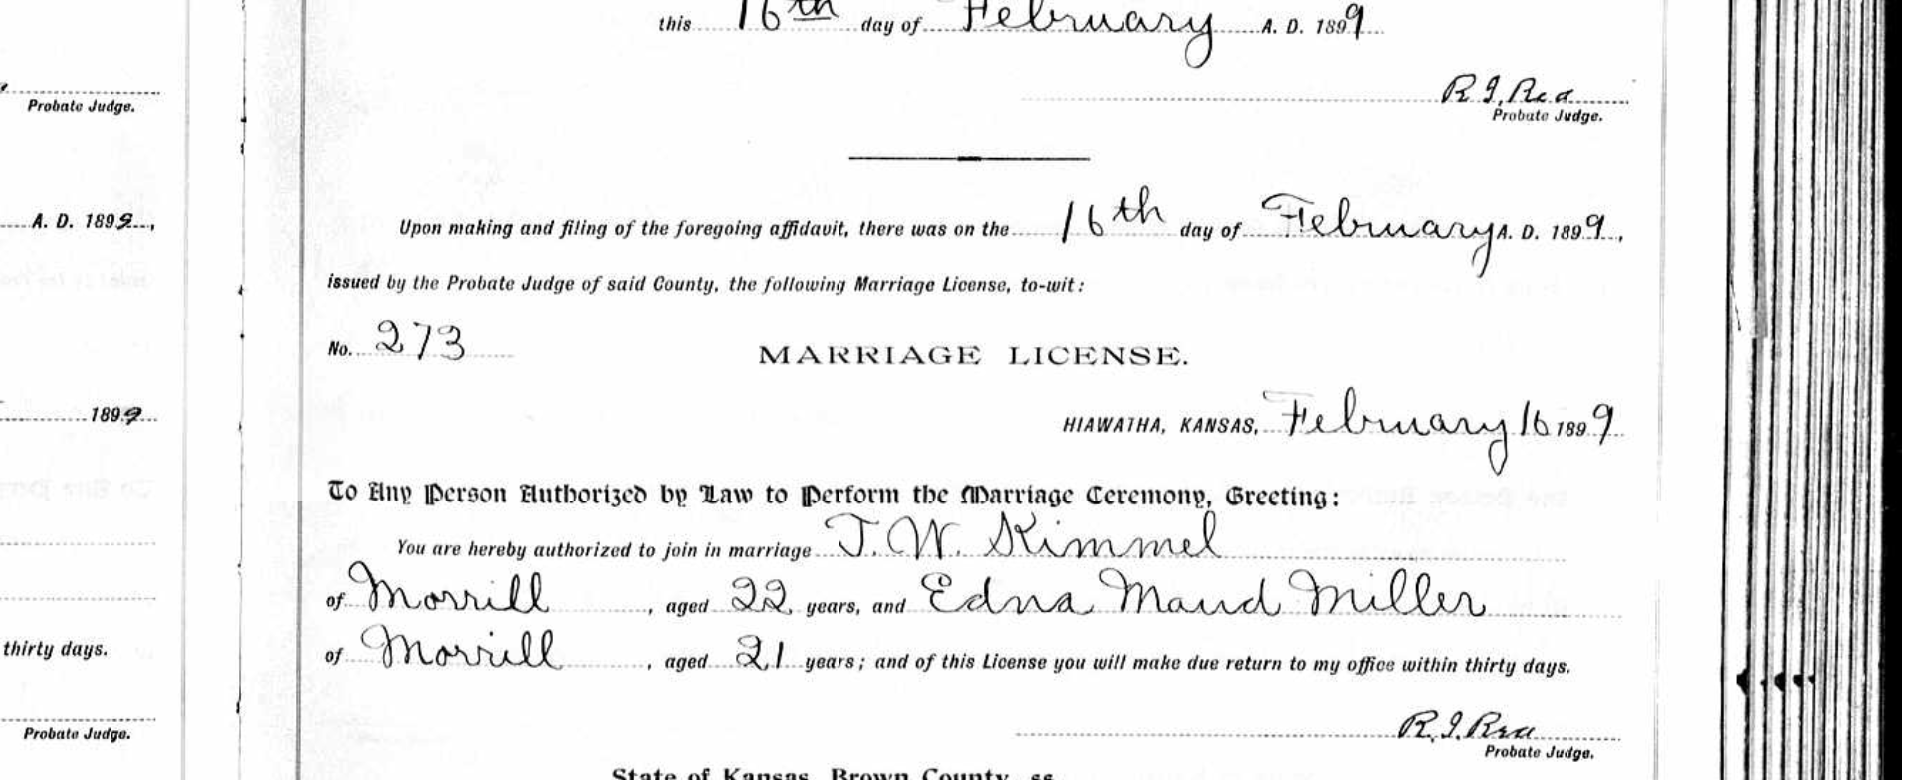 this 16th day of February A. D. 1899
R. J. Rea
Probate Judge.
Probate Judge.
Upon making and filing of the foregoing affidavit, there was on the 16th day of February A. D. 1899,
A. D. 1899,
issued by the Probate Judge of said County, the following Marriage License, to-wit:
No. 273
MARRIAGE LICENSE.
1899
HIAWATHA, KANSAS, February 16 1899
To Any Person Authorized by Law to Perform the Marriage Ceremony, Greeting:
You are hereby authorized to join in marriage T. W. Kimmel
of Morrill, aged 22 years, and Edna Maud Miller
of Morrill, aged 21 years; and of this License you will make due return to my office within thirty days.
thirty days.
R. J. Rea
Probate Judge.
Probate Judge.
State of Kansas, Brown County, ss